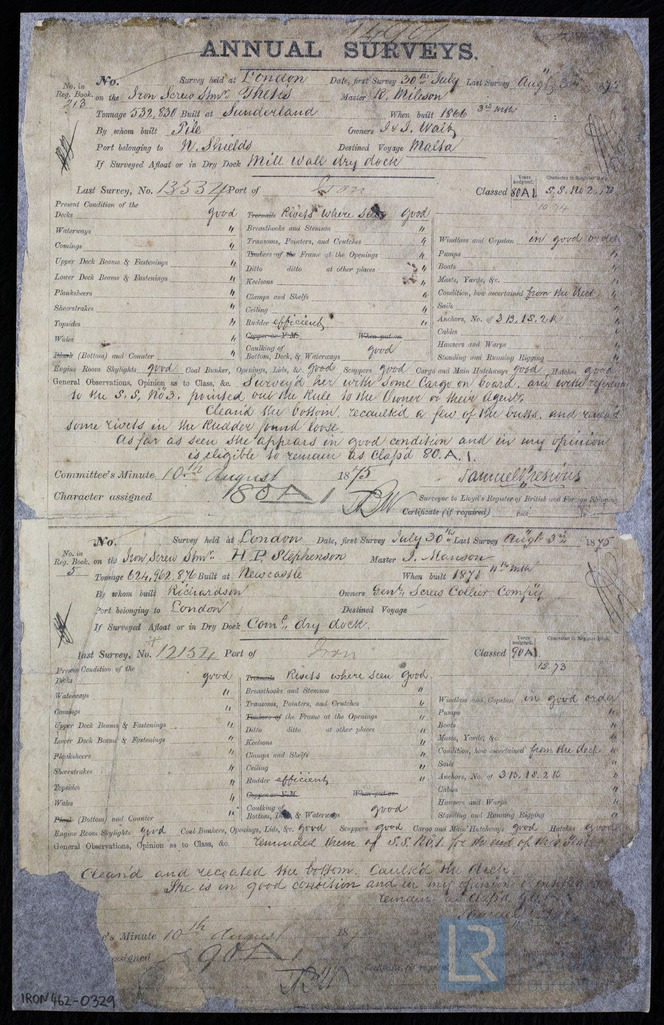 ANNUAL SURVEYS.
No. in Reg. Book. 213
No. Survey held at London Date, first Survey 30th July Last Survey Augt 3rd 187
on the Iron Screw Stmr. Thetis Master R. Wilson
Tonnage 532, 830 Built at Sunderland When built 1866 3rd mth
By whom built Pile Owners J & J. Wait
Port belonging to N. Shields Destined Voyage Malta
If Surveyed Afloat or in Dry Dock Mill wall dry dock
Last Survey, No. 13534 Port of Iron Classed 80 A 1 S.S. No 2.
Years assigned. Character in Register Book
Present Condition of the
Decks good Treenails Rivets where seen good
Waterways " Breasthooks and Stemson "
Comings " Transoms, Pointers, and Crutches " Windlass and Capstan in good order
Upper Deck Beams & Fastenings " Timbers of the Frame at the Openings " Pumps "
Lower Deck Beams & Fastenings " Ditto ditto at other places " Boats "
Planksheers " Keelsons " Masts, Yards, &c. "
Sheerstrakes " Clamps and Shelfs " Condition, how ascertained from the deck
Topsides " Ceiling " Sails "
Wales " Rudder efficient Anchors, No. of 3 B. 1 S. 2 K "
Copper or Y.M. When put on Cables "
Plank (Bottom) and Counter " Caulking of Bottom, Deck, & Waterways good Hawsers and Warps "
Standing and Running Rigging "
Engine Room Skylights good Coal Bunker, Openings, Lids, &c. good Scuppers good Cargo and Main Hatchways good Hatches good
General Observations, Opinion as to Class, &c. Survey'd her with some Cargo on board, and with reference
to the S.S. No. 3. pointed out the Rule to the Owner or their Agent.
Clean'd the bottom, recaulk'd a few of the butts, and
some rivets in the Rudder found loose.
As far as seen she appears in good condition and in my opinion
is eligible to remain as Class'd 80. A. 1.
Committee's Minute 10th August 1875
Character assigned 80 A 1
Surveyor to Lloyd's Register of British and Foreign Shipping
Certificate (if required)
No. in Reg. Book. 5
No. Survey held at London Date, first Survey July 30th Last Survey Augt 3rd 1875
on the Iron Screw Stmr. H. P. Stephenson Master J. Manson
Tonnage 624, 962, 876 Built at Newcastle When built 1871 11th mth
By whom built Richardson Owners Genl. Screw Collier Compy
Port belonging to London Destined Voyage
If Surveyed Afloat or in Dry Dock Coml. dry dock.
Last Survey, No. 12154 Port of Iron Classed 90 A1 12.73
Years assigned. Character in Register Book
Present Condition of the
Decks good Treenails Rivets where seen good
Waterways " Breasthooks and Stemson "
Comings " Transoms, Pointers, and Crutches " Windlass and Capstan in good order
Upper Deck Beams & Fastenings " Timbers of the Frame at the Openings " Pumps "
Lower Deck Beams & Fastenings " Ditto ditto at other places " Boats "
Planksheers " Keelsons " Masts, Yards, &c. "
Sheerstrakes " Clamps and Shelfs " Condition, how ascertained from the deck "
Topsides " Ceiling " Sails "
Wales " Rudder efficient Anchors, No. of 3 B. 1 S. 2 K "
Copper or Y.M. When put on Cables "
Plank (Bottom) and Counter " Caulking of Bottom, Deck, & Waterways good Hawsers and Warps "
Standing and Running Rigging "
Engine Room Skylights good Coal Bunkers, Openings, Lids, &c. good Scuppers good Cargo and Main Hatchways good Hatches good
General Observations, Opinion as to Class, &c. reminded them of S.S. No. 1 for the end of this year
Clean'd and recoated the bottom. Caulk'd the deck.
She is in good condition and in my opinion
remain as Class'd 90
's Minute 10th August 187
assigned 90 A 1
Certificate (if required)
LR
IRON462-0329